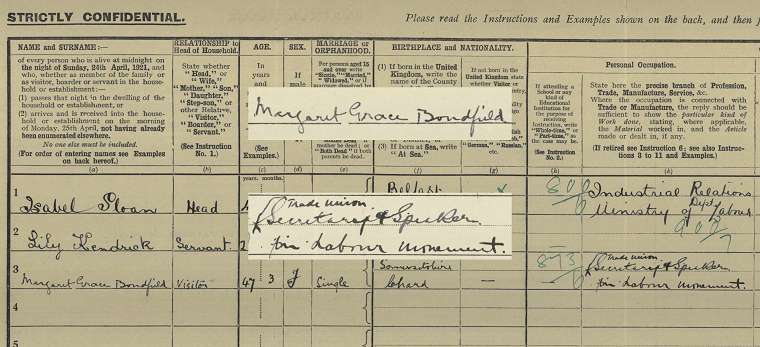 STRICTLY CONFIDENTIAL.
Please read the Instructions and Examples shown on the back, and then
NAME and SURNAME:—
of every person who is alive at midnight on
the night of Sunday, 24th April, 1921, and
who, whether as member of the family or
as visitor, boarder or servant in the house-
hold or establishment:—
(1) passes that night in the dwelling of the
household or establishment, or
(2) arrives and is received into the house-
hold or establishment on the morning
of Monday, 25th April, not having already
been enumerated elsewhere.
No one else must be included.
(For order of entering names see Examples
on back hereof.)
(a)
RELATIONSHIP to
Head of Household.
State whether
"Head," or
"Wife,"
"Mother," "Son,"
"Daughter,"
"Step-son," or
other Relative,
"Visitor,"
"Boarder," or
"Servant."
(See Instruction
No. 1.)
(b)
AGE.
In
years
and
(See
Examples.)
(c)
years. months.
SEX.
If
(d)
MARRIAGE or
ORPHANHOOD.
For persons aged 15
and over write
"Single," "Married,"
"Widowed," or if
mother be dead; or
"Both Dead" if both
parents be dead.
(e)
BIRTHPLACE and NATIONALITY.
(1) If born in the United
Kingdom, write the
name of the County
(3) If born at Sea, write
"At Sea."
(f)
If not born in the
United Kingdom
state whether
"German," "Russian,"
etc.
(g)
If attending a
School or any
kind of
Educational
Institution
for the
purpose of
receiving
Instruction,
write
"Whole-time," or
"Part-time," as
the case may be.
(h)
Personal Occupation.
State here the precise branch of Profession,
Trade, Manufacture, Service, &c.
Where the occupation is connected with
Trade or Manufacture, the reply should be
sufficient to show the particular kind of
Work done, stating, where applicable,
the Material worked in, and the Article
made or dealt in, if any.
(If retired see Instruction 6; see also Instruc-
tions 3 to 11 and Examples.)
(k)
Margaret Grace Bondfield
Trade Union
Secretary & Speaker
for Labour Movement.
1
Isabel Sloan
Head
Belfast
Industrial Relations
Dept
Ministry of Labour
2
Lily Kendrick
Servant
3
Margaret Grace Bondfield
Visitor
47 3
F
Single
Somersetshire
Chard
—
873
Trade Union
Secretary & Speaker
for Labour Movement.
4
5